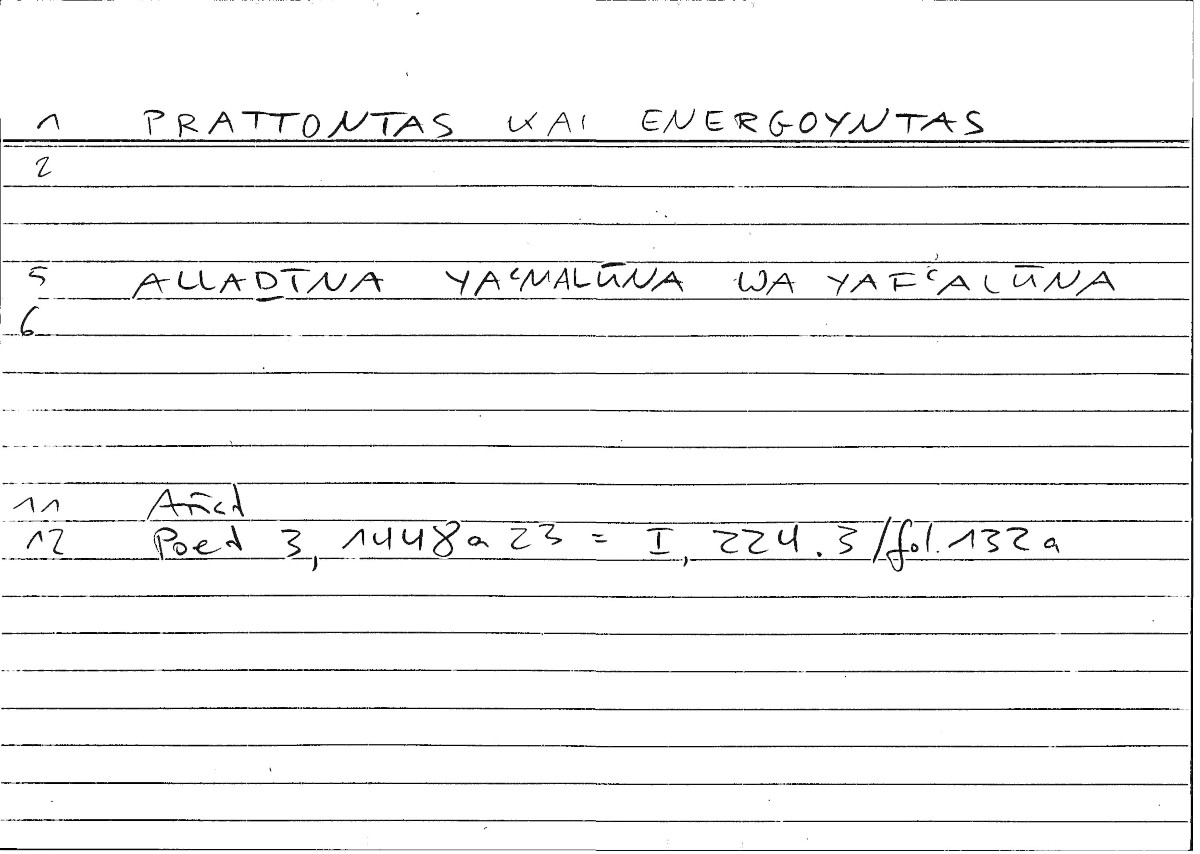 1 PRATTONTAS KAI ENERGOYNTAS
2
5 ALLAḎĪNA YAʿMALŪNA WA YAFʿALŪNA
6
11 Arist
12 Poet 3, 1448a 23 = I, 224.3/fol. 132a